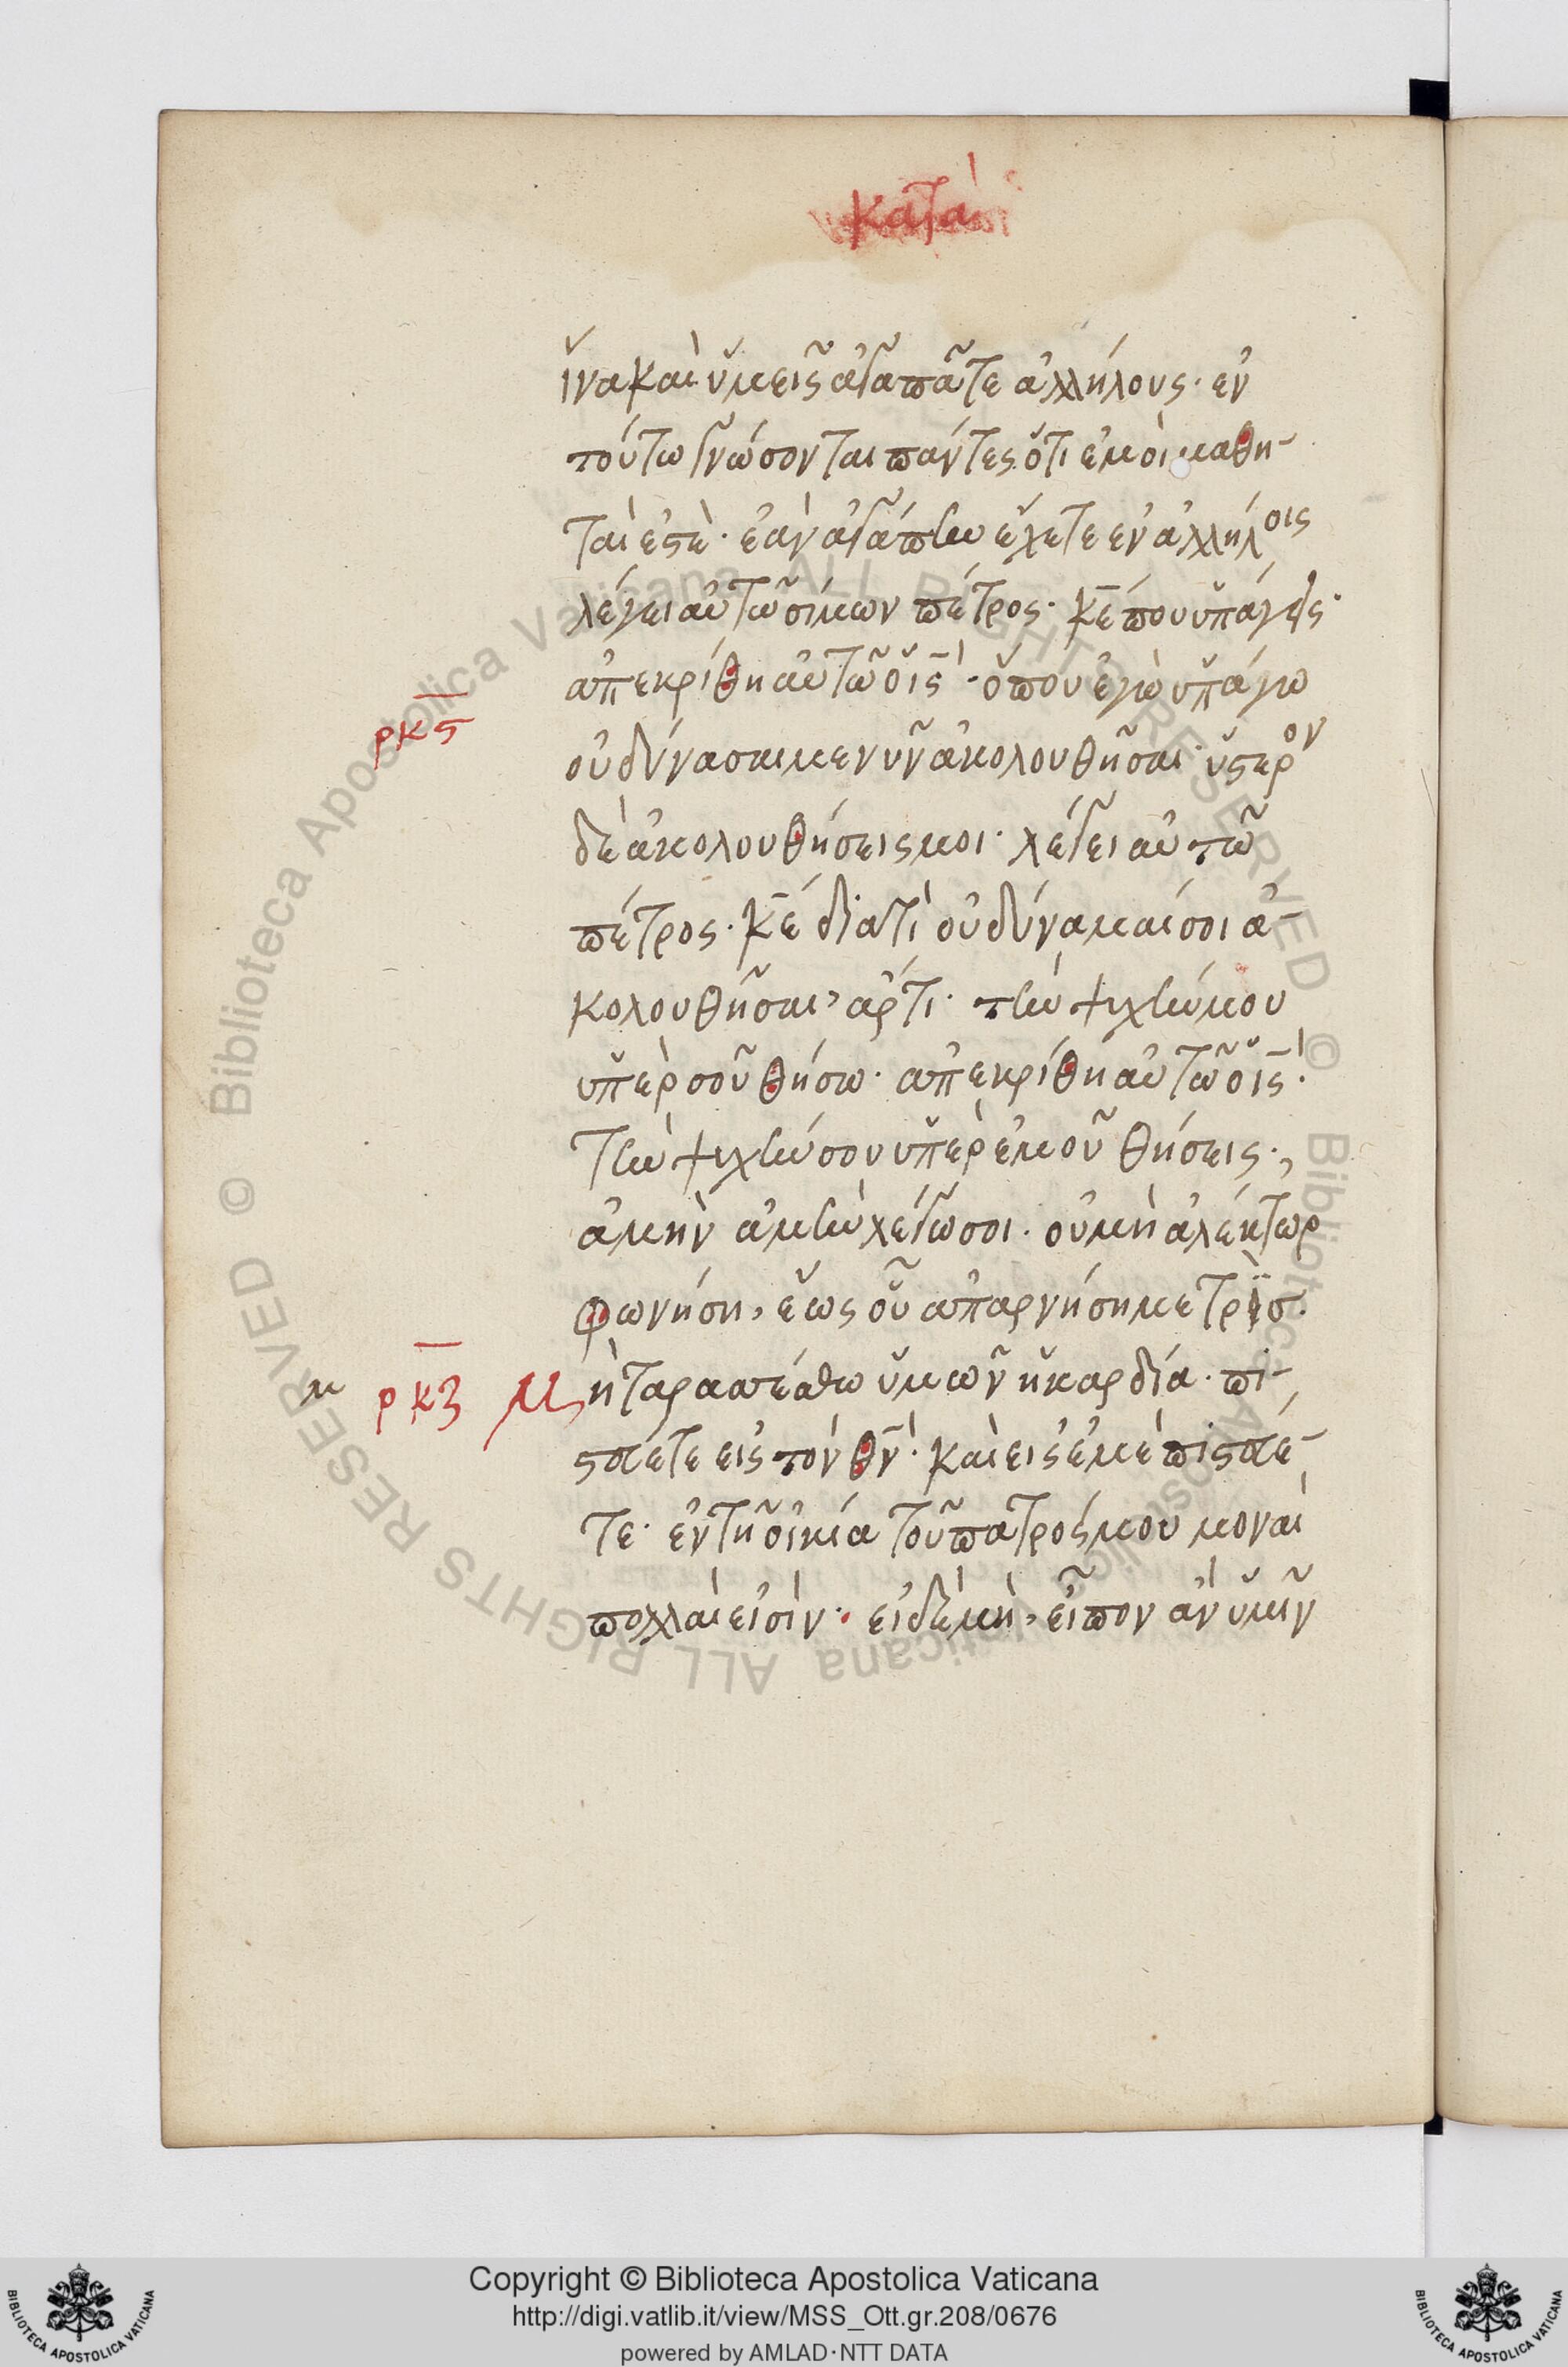 κατὰ
ἵνα καὶ ὑμεῖς ἀγαπᾶτε ἀλλήλους· ἐν
τούτω γνώσονται πάντες ὅτι ἐμοὶ μαθη-
ταὶ ἐστὲ· ἐὰν ἀγάπην ἔχετε ἐν ἀλλήλοις
λέγει αὐτῶ σίμων πέτρος· κ̅ε̅ ποῦ ὑπάγεις·
ἀπεκρίθη αὐτῶ ὁ ι̅ς̅· ὅπου ἐγὼ ὑπάγω
ρκϛ
οὐ δύνασαί με νῦν ἀκολουθῆσαι· ὕστερον
δὲ ἀκολουθήσεις μοι· λέγει αὐτῶ
πέτρος· κ̅ε̅ διατὶ οὐ δύναμαί σοι ἀ-
κολουθῆσαι, ἄρτι· τὴν ψυχήν μου
ὑπὲρ σοῦ θήσω· ἀπεκρίθη αὐτῶ ὁ ι̅ς̅·
τὴν ψυχήν σου ὑπὲρ ἐμοῦ θήσεις·,
ἀμὴν ἀμὴν λέγω σοι· οὐ μὴ ἀλέκτωρ
φωνήση, ἕως οὗ ἀπαρνήση με τρὶς·
ρκζ Μὴ ταρασσέσθω ὑμῶν ἡ καρδία· πι-
στεύετε εἰς τὸν θ̅ν̅· καὶ εἰς ἐμὲ πιστεύε-
τε· ἐν τῆ οἰκία τοῦ πατρός μου μοναὶ
πολλαὶ εἰσὶν· εἰ δὲ μὴ, εἶπον ἂν ὑμῖν
Copyright © Biblioteca Apostolica Vaticana
http://digi.vatlib.it/view/MSS_Ott.gr.208/0676
powered by AMLAD·NTT DATA
BIBLIOTECA APOSTOLICA VATICANA
BIBLIOTECA APOSTOLICA VATICANA
© Biblioteca Apostolica Vaticana ALL RIGHTS RESERVED
© Biblioteca Apostolica Vaticana ALL RIGHTS RESERVED